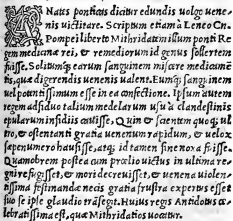 ANates ponticas dicitur edundis uulgo uene-
nis uictitare. Scriptum etiam à Leneo Cn.
Pompei liberto Mithridatem illum ponti Re
gem medicinæ rei, et remediorum id genus sollertem
fuisse. Solitumq; earum sanguinem miscere medicamen
tis, quæ digerendis uenenis ualent. Eumq; sanguinem
uel potentissimum esse in ea confectione. Ipsum autem
regem adsiduo talium medelarum usu à clandestinis
epularum insidiis cauisse. Quin et scientem quoq; ul
tro, et ostentandi gratia uenenum rapidum, et uelox
sæpenumero hausisse, atq; id tamen sine noxa fuisse.
Quamobrem postea cum prælio uictus in ultima re-
gni refugisset, et mori decreuisset, et uenena uiolen-
tissima festinandæ necis gratia frustra expertus esset
suo se ipse gladio træsegit. Huius regis Antidotus ce
lebratissima est, quæ Mithridatios uocatur.